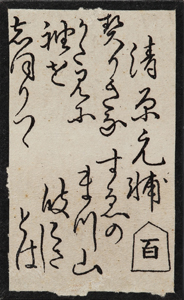 清原元輔
契りきな
かたみに
袖を
しほりつゝ
すゑの
まつ山
波こさ
しとは
百